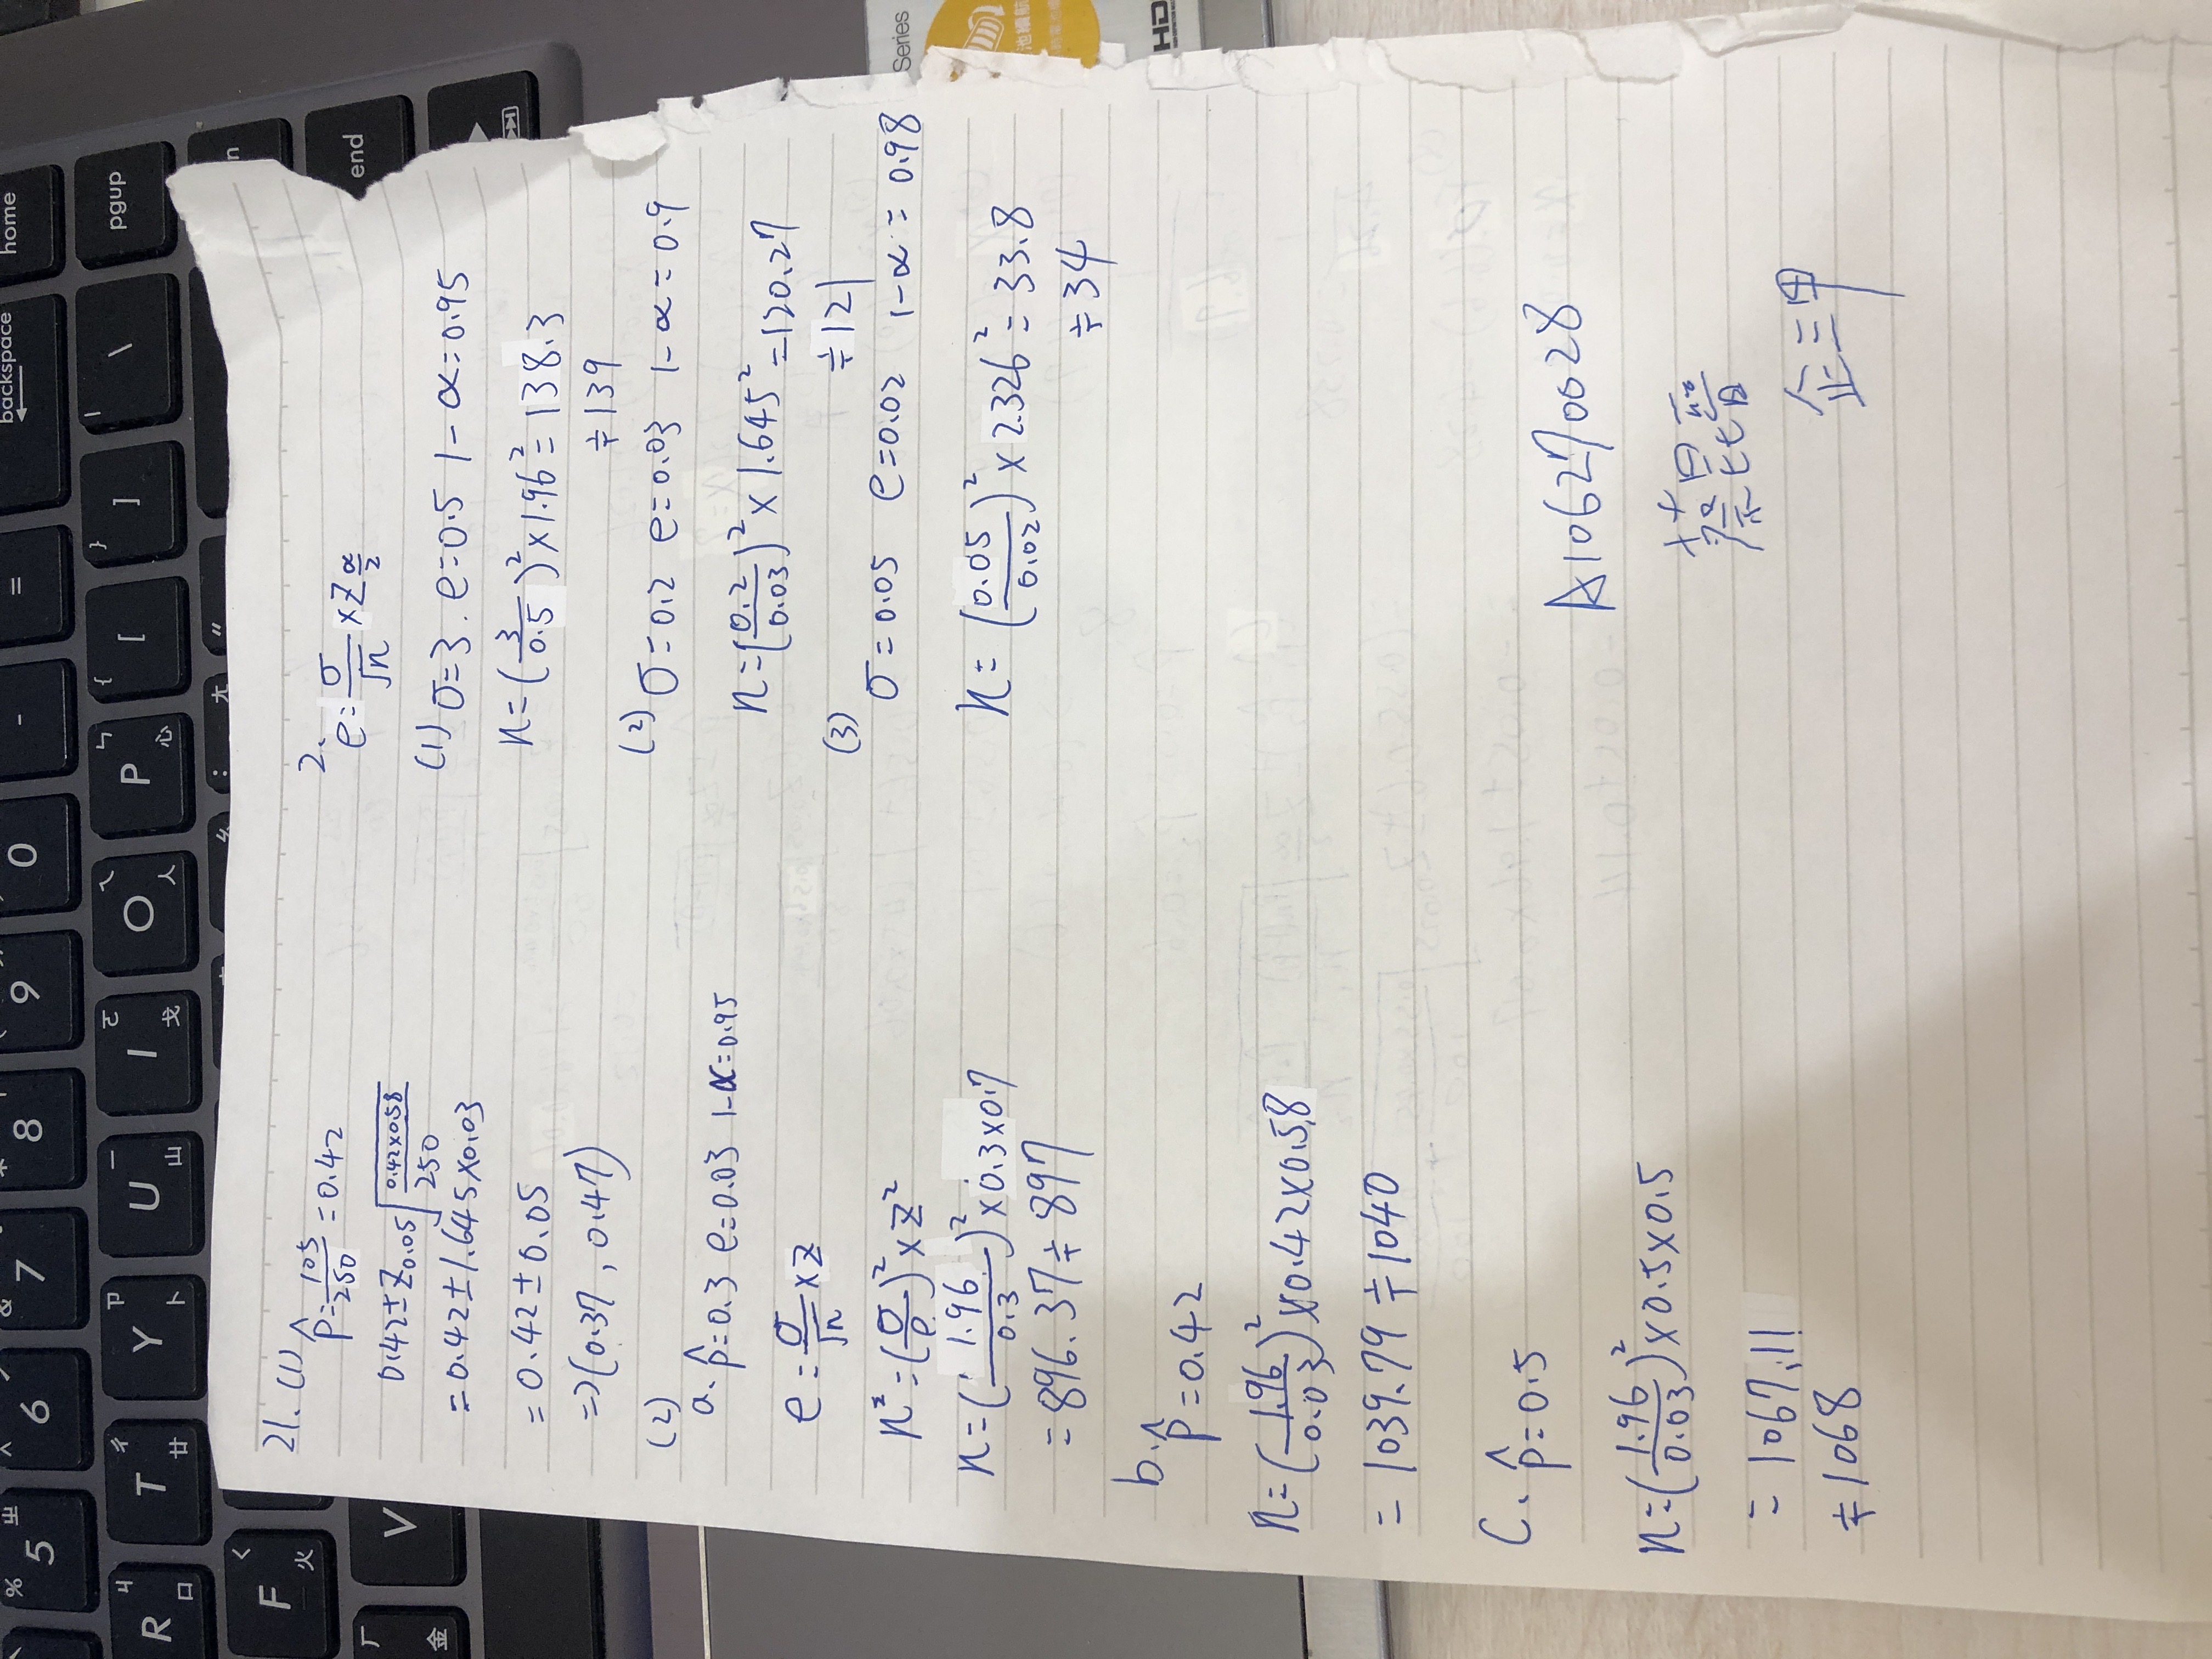 % 5 ㄓ
^ 6
& 7
* 8
( 9
) 0
-
=
backspace
home
R ㄐ 口
T ㄔ 廿
Y ㄗ 卜
U ㄧ 山
I ㄛ 戈
O ㄟ 人
P ㄣ 心
{ [
} ]
| \
pgup
F ㄑ 火
end
ㄏ 金
V
Series
池續航
HD
21. (1) p̂=105/250=0.42
0.42±Z0.05√(0.42×0.58/250)
=0.42±1.645×0.03
=0.42±0.05
=>(0.37, 0.47)
(2)
a. p̂=0.3 e=0.03 1-α=0.95
e=σ/√n×Z
n²=(σ/e)²×Z²
n=(1.96/0.3)²×0.3×0.7
=896.37≑897
b. p̂=0.42
n=(1.96/0.03)²×0.42×0.58
=1039.79≑1040
C. p̂=0.5
n=(1.96/0.03)²×0.5×0.5
=1067.11
≑1068
2. e=σ/√n×Zα/2
(1) σ=3. e=0.5 1-α=0.95
n=(3/0.5)²×1.96²=138.3
≑139
(2) σ=0.2 e=0.03 1-α=0.9
n=(0.2/0.03)²×1.645²=120.27
≑121
(3)
σ=0.05 e=0.02 1-α=0.98
n=(0.05/0.02)²×2.326²=33.8
≑34
A106270028
蔡昆晉
企三甲